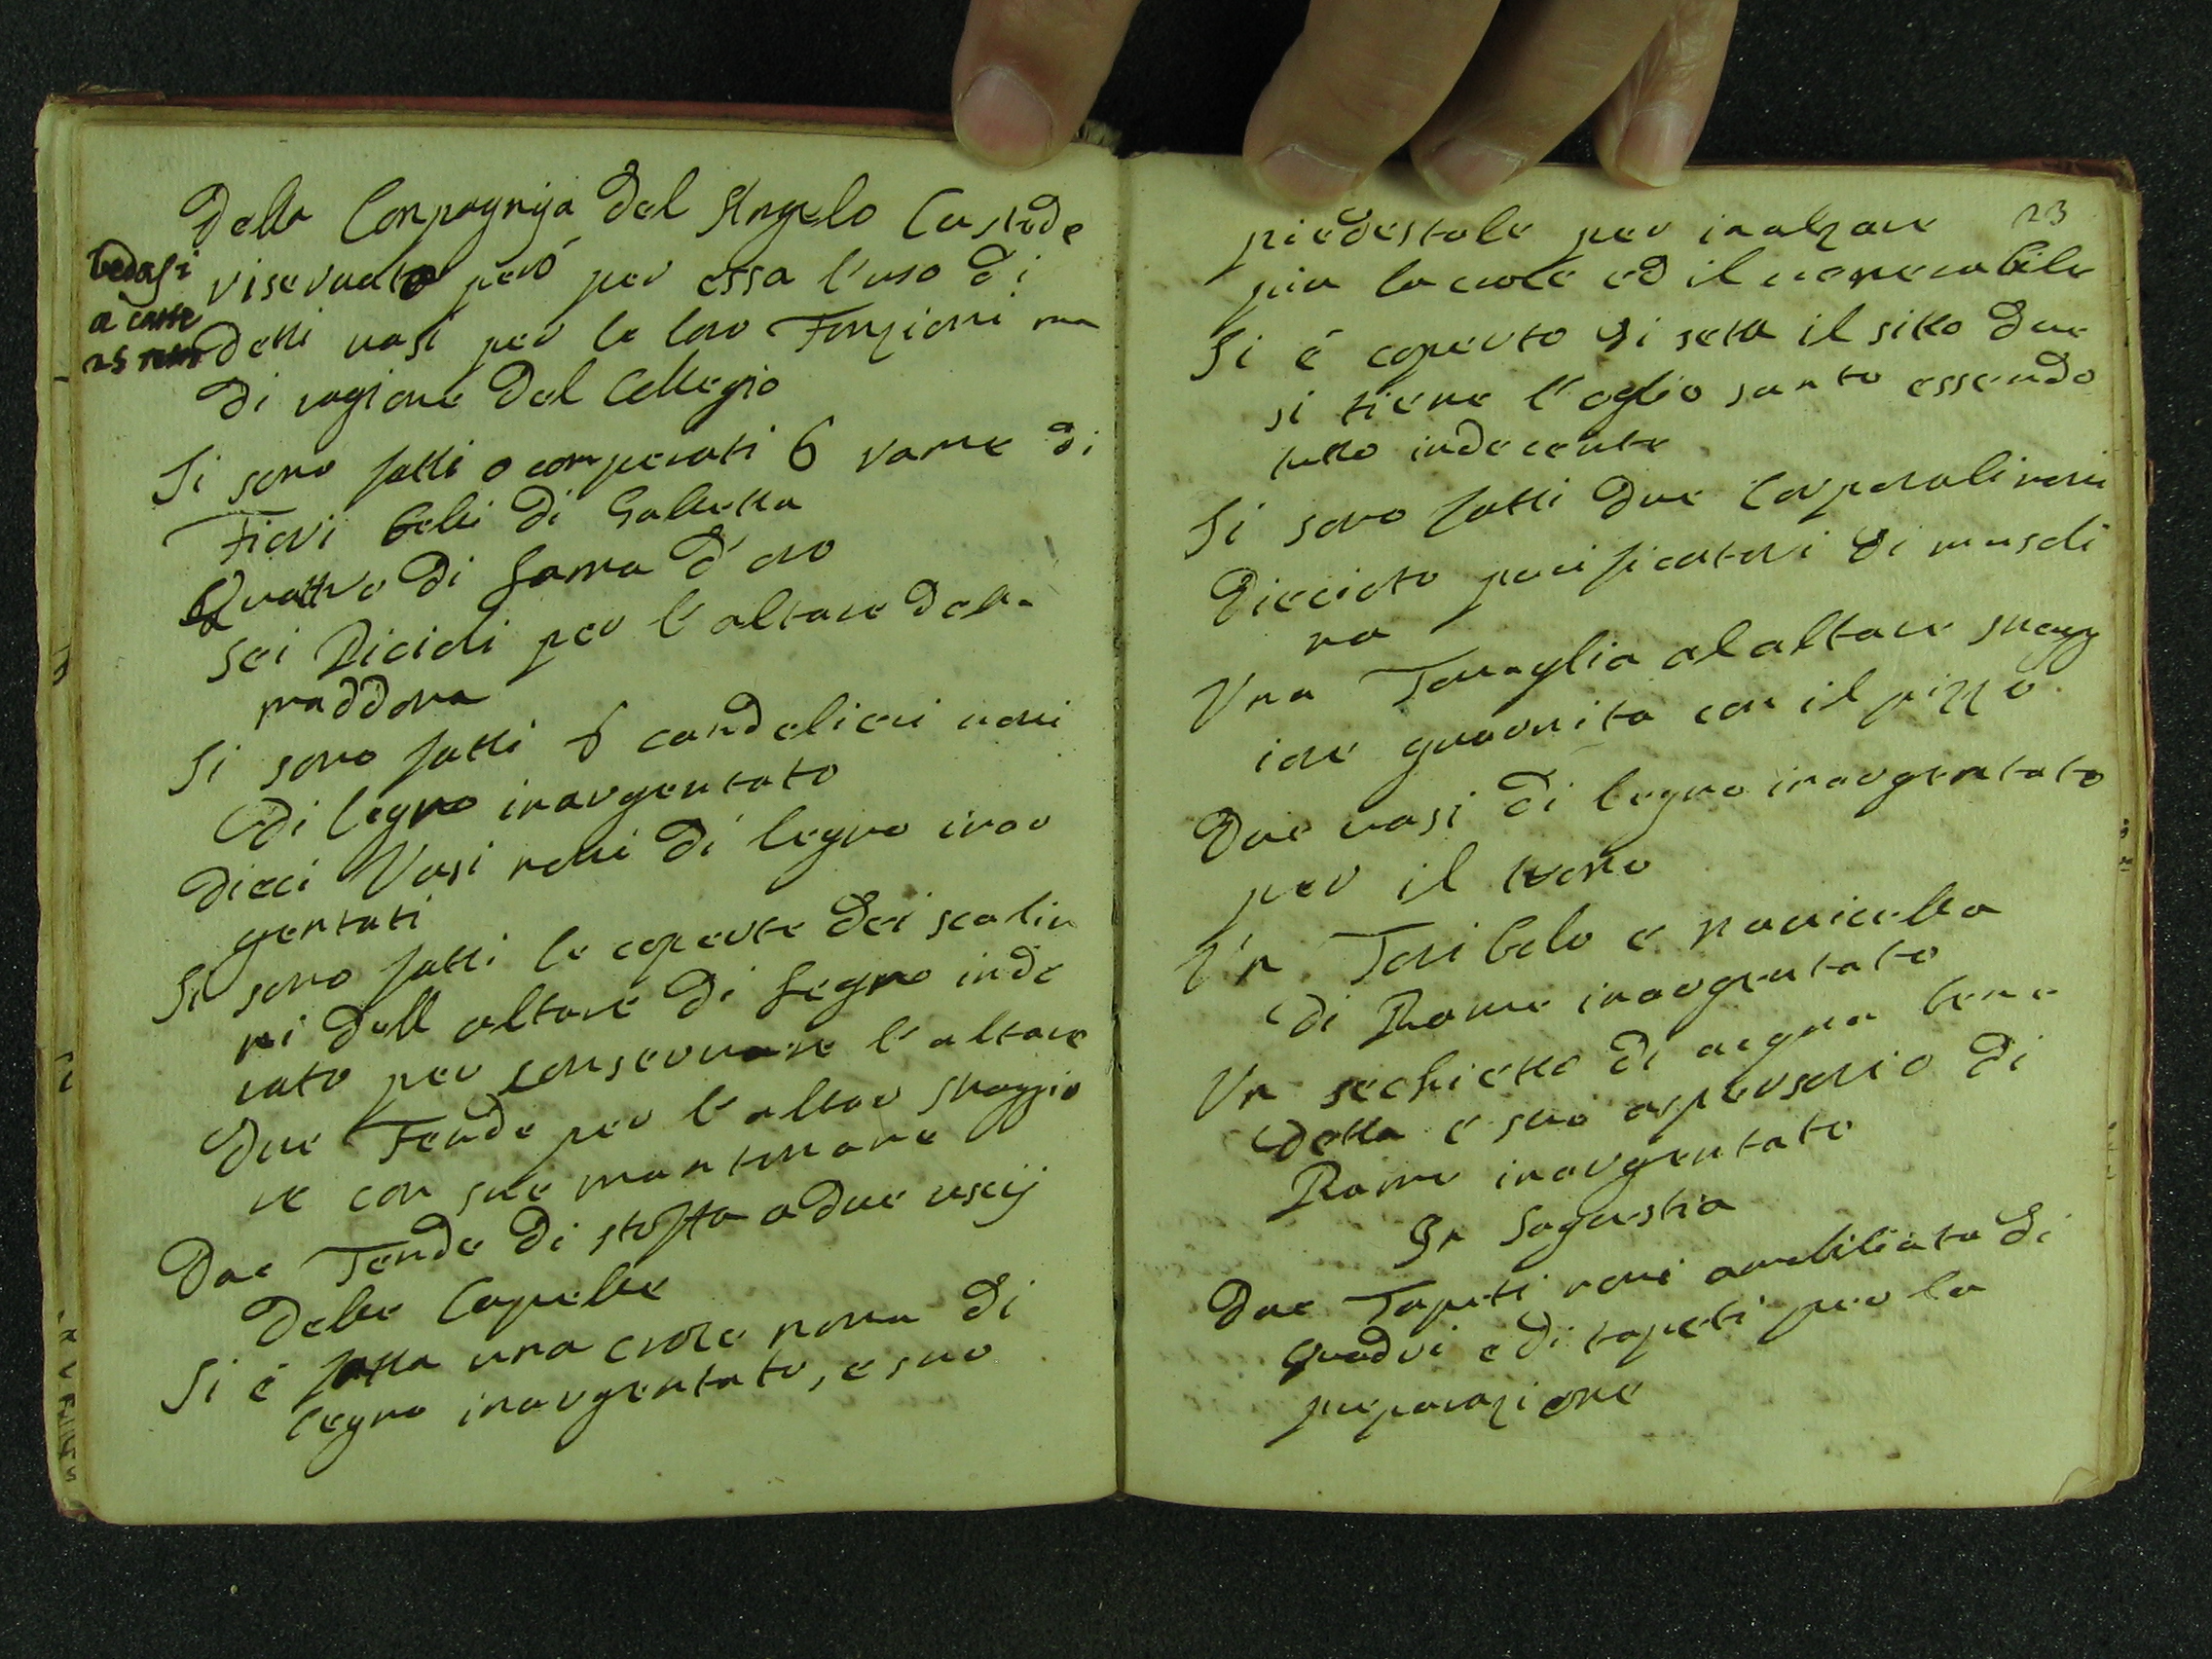 Della Conpagnija Del Angelo Custode
Vedasi
a carte
25
riservato però per essa l'uso di
detti vasi per le loro Fonzioni ma
di ragione Del Collegio
Si sono fatti o comperati 6 rame di
Fiori belli di Galletta
Quattro di Lama d'oro
Sei Piccioli per l'altare della
maddona
Si sono fatti 6 candelieri novi
di legno inargentato
Dieci Vasi novi di legno inar
gentati
Si sono fatti le coperte dei scalin
ni dell altare di Legno inde
rato per conservare l'altare
Due Tende per l'altar Maggio
re con sue mantovane
Due Tende di stoffa a due uscij
Delle Capelle
Si è fatta una croce nova di
legno inargentato, e suo
23
piedestale per inalzare
più la croce ed il venerabile
Si è coperto di seta il sitto due
si tiene l'oglio santo essendo
tutto indecente
Si sono fatti due Corporali novi
Dicciotto purificatori di musoli
na
Una Tovaglia al altare magg
iore guarnita con il pizzo
Due vasi di legno inargentato
per il trono
Un Toribolo e navicella
di Rame inargentato
Un sechietto di acqua bene
detta e suo aspersorio di
Rame inargentato
In Sagrestia
Due Tapeti novi amobiliata di
quadri e di tapeti per la
preparazione